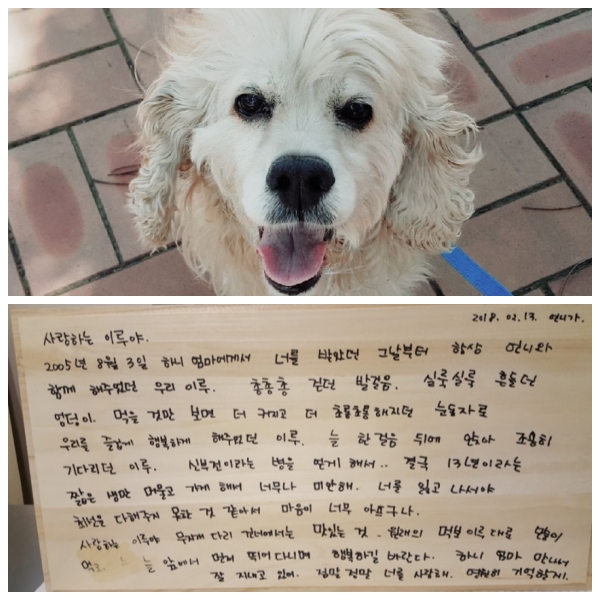 2018. 02. 13. 언니가.
사랑하는 이루야.
2005년 8월 3일 하니 엄마에게서 너를 받았던 그날부터 항상 언니와
함께 해주었던 우리 이루. 총총총 걷던 발걸음, 실룩실룩 흔들던
엉덩이. 먹을 것만 보면 더 커지고 더 초롱초롱해지던 눈동자로
우리를 즐겁게 행복하게 해주었던 이루. 늘 한 걸음 뒤에 앉아 조용히
기다리던 이루. 신부전이라는 병을 얻게 해서.. 결국 13년이라는
짧은 생만 머물고 가게 해서 너무나 미안해. 너를 잃고 나서야
최선을 다해주지 못한 것 같아서 마음이 너무 아프구나.
사랑하는 이루야 무지개 다리 건너에서는 맛있는 것. 원래의 먹보 이루대로 많이
먹고. 늘 앞에서 먼저 뛰어다니며 행복하길 바란다. 하니 엄마 만나서
잘 지내고 있어. 정말 정말 너를 사랑해. 영원히 기억할게.